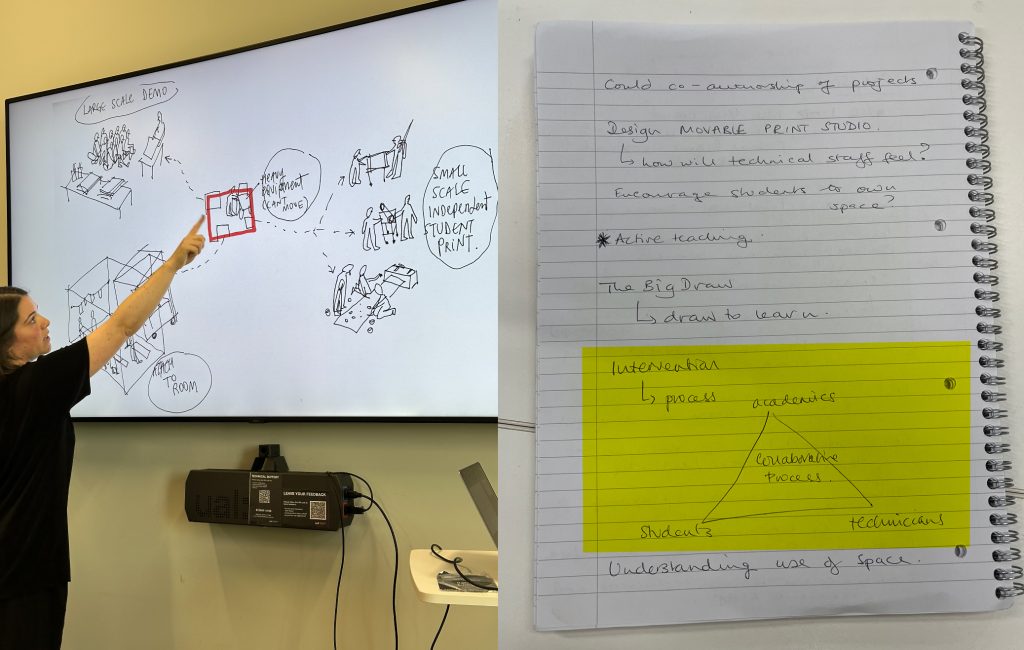 LARGE SCALE DEMO
HEAVY
EQUIPMENT
(CAN'T
MOVE)
SMALL
SCALE
INDEPENDENT
STUDENT
PRINT.
ATTACH
TO
ROOM
TECHNICAL SUPPORT
LEAVE YOUR FEEDBACK
Could co-authorship of projects
Design MOVABLE PRINT STUDIO.
↳ how will technical staff feel?
Encourage students to own
space?
* Active teaching.
The Big Draw
↳ draw to learn.
Intervention
↳ process
academics
Collaborative
Process.
Students
technicians
Understanding use of space.